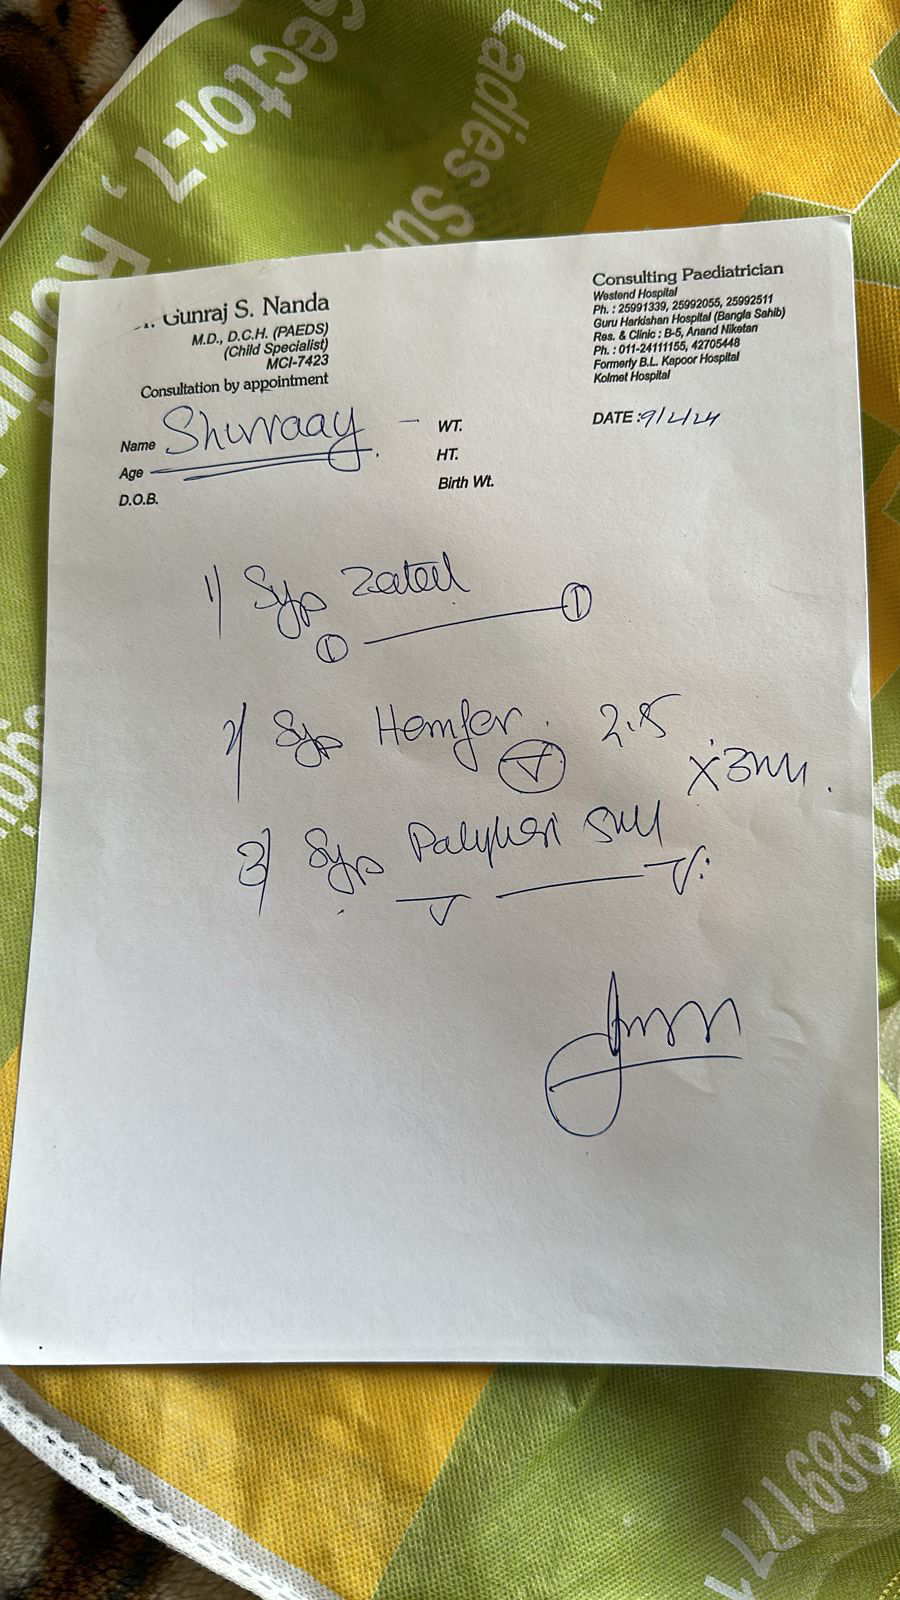 Sector-7, Rohini
i Ladies Sui
Gunraj S. Nanda
M.D., D.C.H. (PAEDS)
(Child Specialist)
MCI-7423
Consultation by appointment
Consulting Paediatrician
Westend Hospital
Ph. : 25991339, 25992055, 25992511
Guru Harkishan Hospital (Bangla Sahib)
Res. & Clinic : B-5, Anand Niketan
Ph. : 011-24111155, 42705448
Formerly B.L. Kapoor Hospital
Kolmet Hospital
Name Shivraay - WT.
Age HT.
D.O.B. Birth Wt.
DATE : 9/4/24
1) Syp
① — ①
2) Syp Hemfer 2.5
3) Syp
.9899177